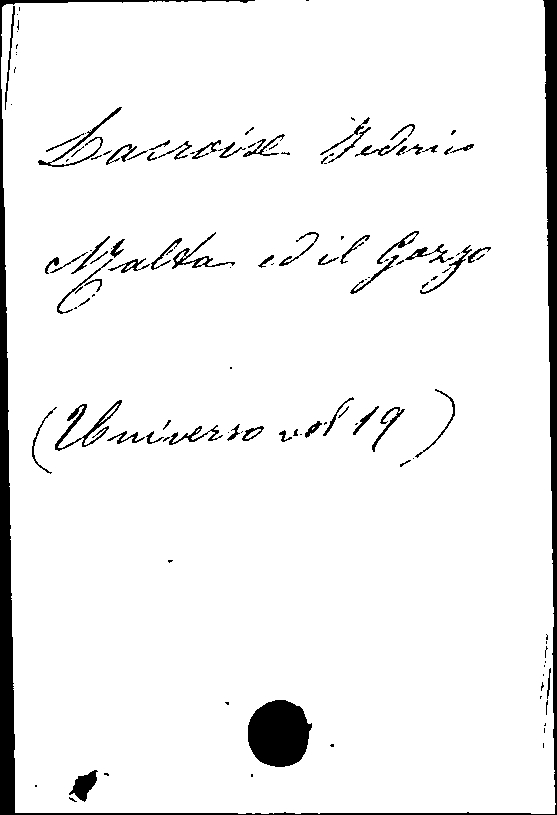 Lacroix Federico
Malta ed il Gozzo
(Universo vol 19)